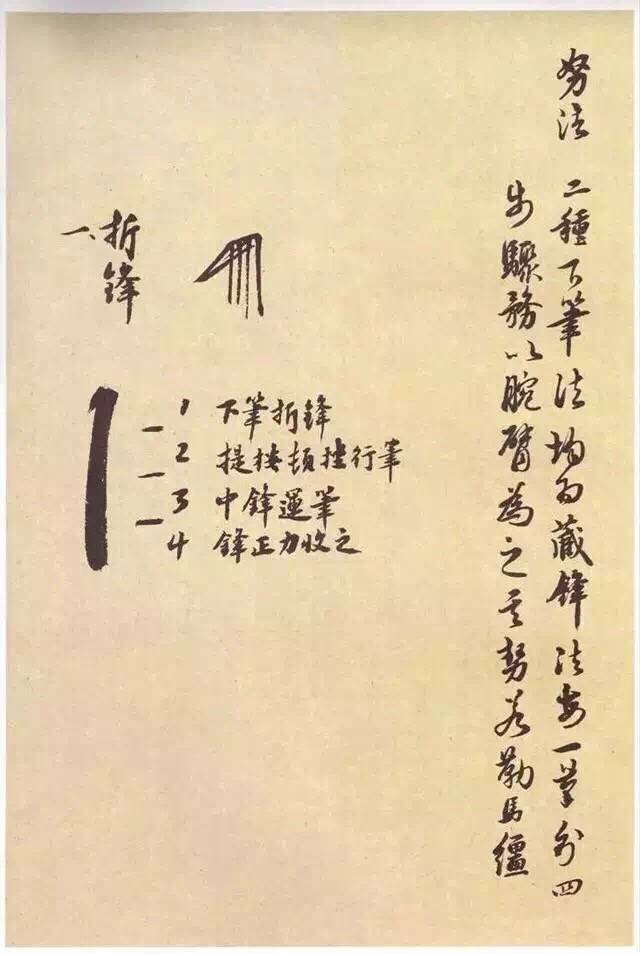 努法 二種下筆法均為藏鋒法每一筆分四
步驟務以腕臂為之其勢若勒馬繮
一、折鋒
1 下筆折鋒
2 提按頓挫行筆
3 中鋒運筆
4 鋒正力收之